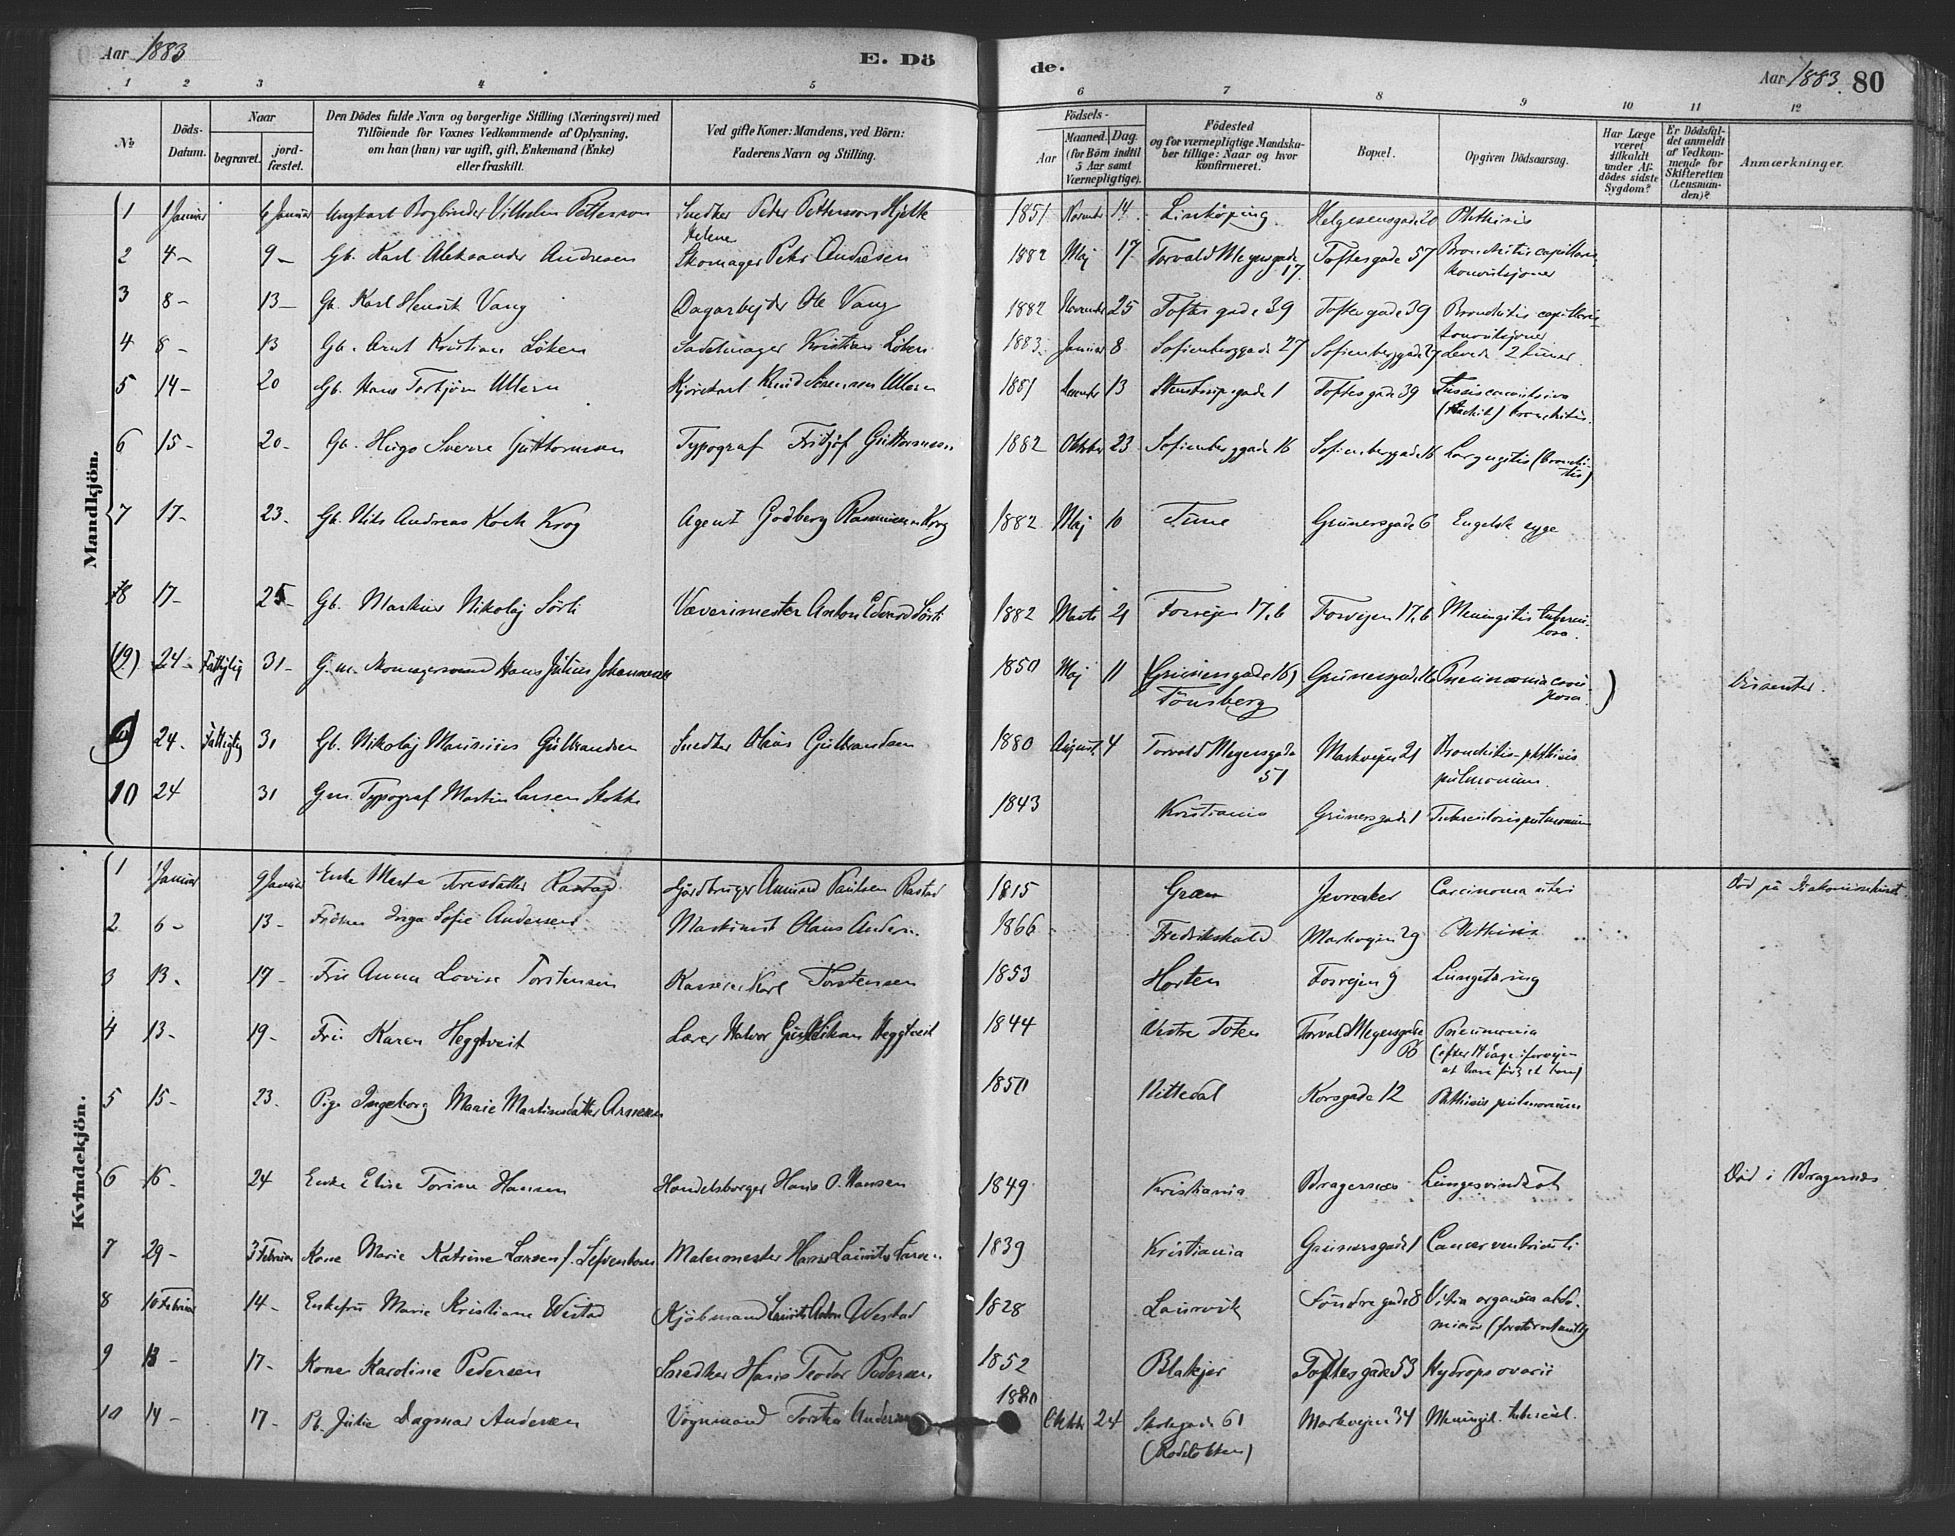 Aar 1883
E. Dö
de.
Aar 1883. 80
1 2 3 4 5 6 7 8 9 10 11 12
№
Döds-
Datum.
Naar
begravet.
jord-
fæstet.
Den Dödes fulde Navn og borgerlige Stilling (Næringsvei) med
Tilföiende for Voxnes Vedkommende af Oplysning,
om han (hun) var ugift, gift, Enkemand (Enke)
eller fraskilt.
Ved gifte Koner: Mandens, ved Börn:
Faderens Navn og Stilling.
Födsels-
Aar
Maaned. Dag.
(for Börn indtil
5 Aar samt
Værnepligtige).
Födested
og for værnepligtige Mandska-
ber tillige: Naar og hvor
konfirmeret.
Bopæl.
Opgiven Dödsaarsag.
Har Læge
været
tilkaldt
under Af-
dödes sidste
Sygdom?
Er Dödsfal-
det anmeldt
af Vedkom-
mende for
Skifteretten
(Lensman-
den)?
Anmærkninger.
Mandkjön.
1 1 Januar 6 Januar Ungkarl Bogbinder Vilhelm Petterson Snedker Peter Petterson 1851 November 14. Linköping Helgesensgade 20 Phthisis
2 4 - 9 - Gb. Karl Aleksander Andresen Skomager Peter Andresen 1882 Maj 17. Torvald Meyersgade 17. Toftesgade 57 Bronchitis capillaris
konvulsjoner
3 8 - 13 - Gb. Karl Henrik Vang Dagarbejder Ole Vang 1882 November 25 Toftesgade 39 Toftesgade 39 Bronchitis capillaris
konvulsjoner
4 8 - 13 Gb. Arnt Kristian Löken Sadelmager Kristian Löken 1883 Januar 8 Sofienberggade 27 Sofienberggade 27 Levede 2 Timer
5 14 - 20 Gb. Hans Torbjörn Ullern Kjörekarl Knud Sörensen Ullern 1881 13 Stenstrupsgade 1 Toftesgade 39 Tussis convulsiva
bronchitis.
6 15 - 20 - Gb. Hugo Sverre Guttormsen Typograf Fritjof Guttormsen 1882 Oktober 23 Sofienberggade 16 Sofienberggade 16 Laryngitis (bronchi-
tis)
7 17 - 23 - Gb. Nils Andreas Koch Krog Agent Godberg Rasmussen Krog 1882 Maj 10 Tune Grünersgade 6 Engelsk syge
8 17 - 25 - Gb. Markus Nikolaj Sörli Væverimester Anton Edvard Sörli 1882 Marts 21 Fosvejen 17.b Fosvejen 17.b Meningitis tubercu-
losa.
(9) 24 - Fattiglig 31 - G.m. Skomagersvend Hans Julius Johannesen 1850 Maj 11 (Grünersgade 16) Grünersgade 16 Pneumonia
Tönsberg
Dissenter.
9 24. Fattiglig 31 Gb. Nikolaj Mauritius Gulbrandsen Snedker Olaus Gulbrandsen 1880 August 4 Torvald Meyersgade
51
Markvejen 21 Bronchitis - phthisis
pulmonum.
10 24 31 G.m. Typograf Martin Larsen Stokke 1843 Kristiania Grünersgade 1 Tuberculosis pulmonum
Kvindekjön.
1 1 Januar 9 Januar Enke Marte Iversdatter Rastad Gårdbruger Amund Paulsen Rastad 1815 Gran Jevnaker Carcinoma uteri Död på Diakonissehuset
2 6 - 13 - Fröken Inga Sofie Andersen Maskinist Olaus Andersen 1866 Fredrikshald Markvejen 29 Phthisis
3 13. 17 - Fru Anna Lovise Torstensen Kasserer Karl Torstensen 1853 Horten Fosvejen 9 Lungetæring
4 13 - 19 - Fru Karen Heggtveit Lærer Halvor Heggtveit 1844 Vestre Toten Torvald Meyersgade Pneumonia
5 15 - 23. Pige Ingeborg Marie Martinsdatter Arnesen 1850 Nittedal Korsgade 12 Phthisis pulmonum
6 16 - 24 Enke Elise Torine Hansen Handelsborger Hans O. Hansen 1849 Kristiania Bragernæs Lungesvindsot Död i Bragernæs
7 29 - 3 Februar Kone Marie Katrine Larsen f. Malermester Hans Laurits Larsen 1839 Kristiania Grünersgade 1 Cancer ventriculi
8 10 Februar 14 - Enkefru Marie Kristiane Westad Kjöbmand Westad 1828 Laurvik Söndregade 8 Vitia organica abdo-
9 13 - 17 - Kone Karoline Pedersen Snedker Hans Teodor Pedersen 1852 Blakjer Toftesgade 53 Hydrops ovarii
10 14 - 17 - Pb. Julie Dagmar Andersen Vognmand Andersen 1880 Oktober 24 Skolegade 61
(Rodelökken)
Markvejen 34 Meningit. tubercul.